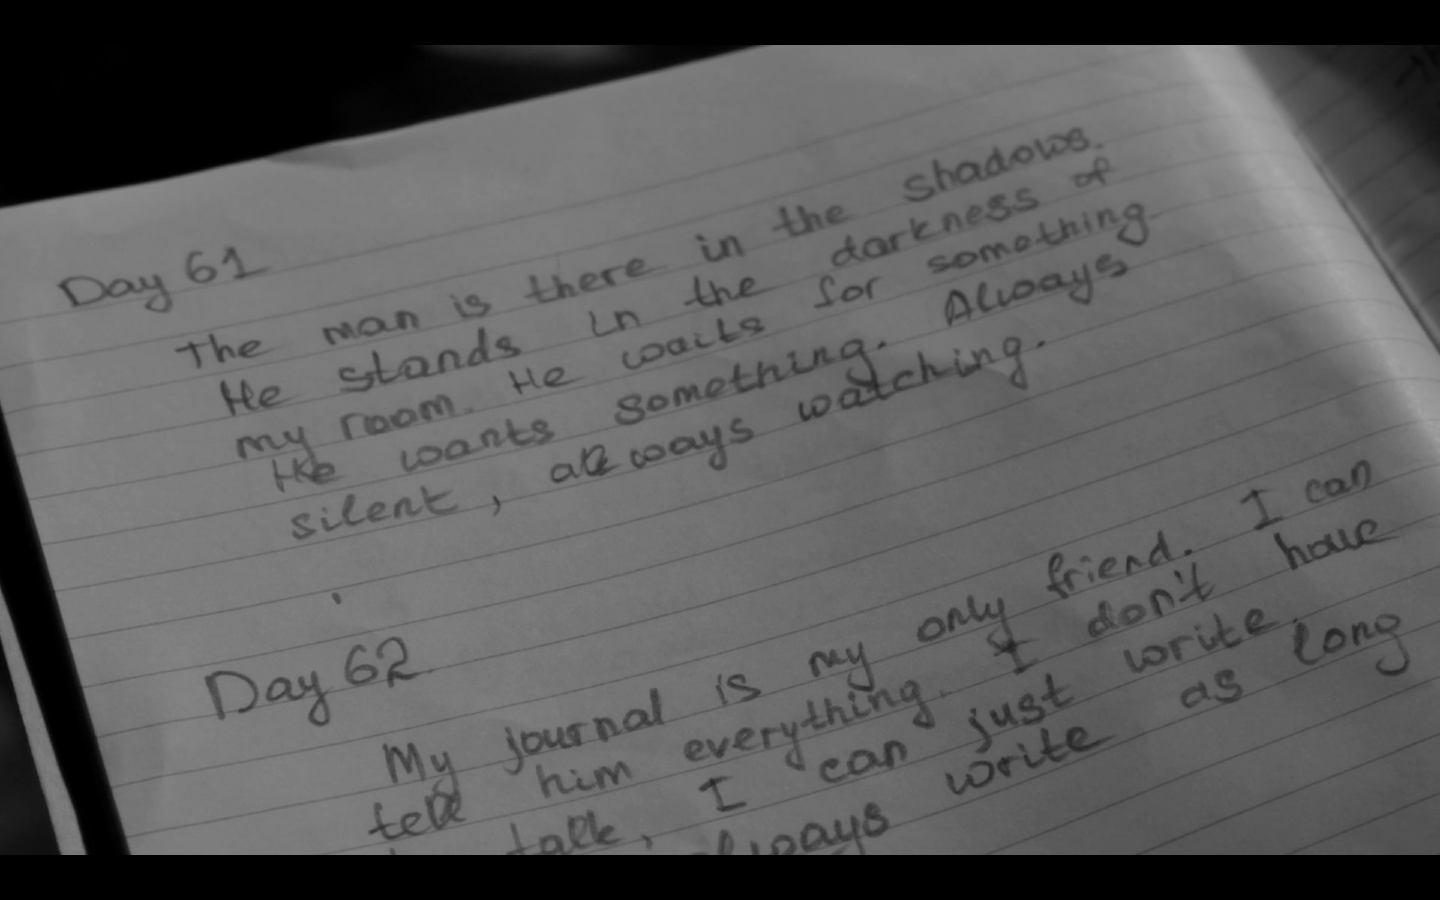 Day 61
The man is there in the shadows.
He stands in the darkness of
my room. He waits for something
He wants something. Always
silent, always watching.
Day 62
My journal is my only friend. I can
tell him everything. I don't have
talk, I can just write.
always write as long